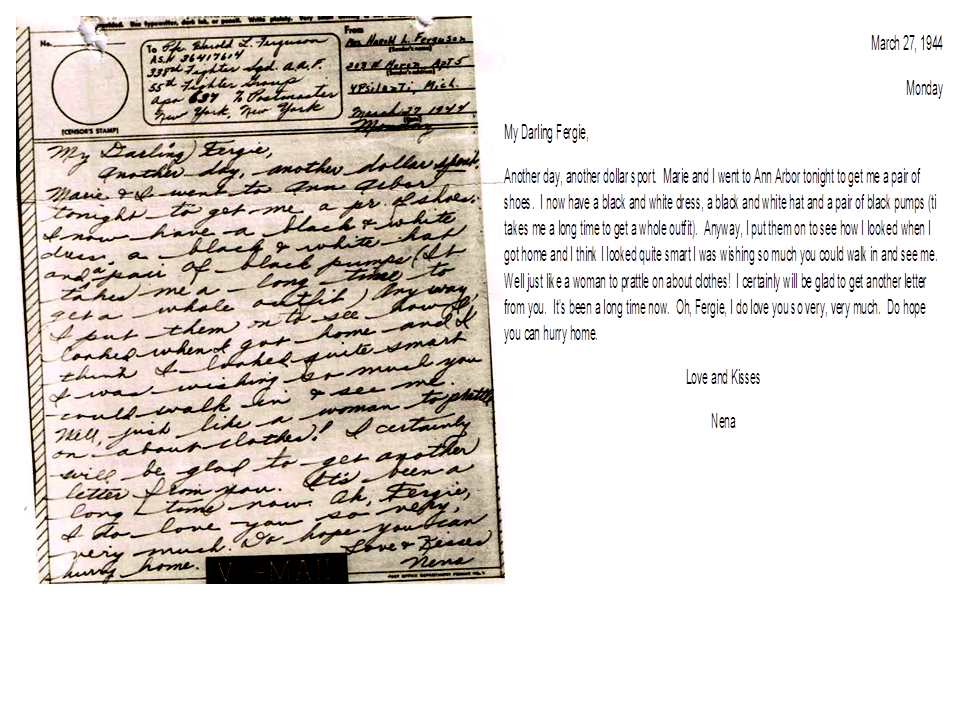 provided. Use typewriter, dark ink, or pencil. Write plainly. Very small
No.
[CENSOR'S STAMP]
To Pfc. Harold L. Ferguson
ASN 36417614
338th Fighter Sqd. A.A.F.
55th Fighter Group
Apo 637 % Postmaster
New York, New York
From
Mrs Harold L. Ferguson
[Sender's name]
203 N
Apt 5
[Sender's address]
YPsilanti, Mich.
March 27 1944
[Date]
Monday
My Darling Fergie,
Another day, another dollar spent.
Marie & I went to Ann Arbor
tonight to get me a pr. of shoes.
I now have a black & white
dress, a black & white hat
and a pair of black pumps (It
takes me a long time to
get a whole outfit) Any way,
I put them on to see how I
looked when I got home and I
think I looked quite smart
I was wishing so much you
could walk in & see me.
Well, just like a woman to
on about clothes! I certainly
will be glad to get another
letter from you. It's been a
long time now. Oh, Fergie,
I do love you so very,
very much. Do hope you can
hurry home. Love & Kisses
Nena
V-MAIL
POST OFFICE DEPARTMENT PERMIT NO.
March 27, 1944
Monday
My Darling Fergie,
Another day, another dollar sport. Marie and I went to Ann Arbor tonight to get me a pair of
shoes. I now have a black and white dress, a black and white hat and a pair of black pumps (ti
takes me a long time to get a whole outfit). Anyway, I put them on to see how I looked when I
got home and I think I looked quite smart I was wishing so much you could walk in and see me.
Well just like a woman to prattle on about clothes! I certainly will be glad to get another letter
from you. It's been a long time now. Oh, Fergie, I do love you so very, very much. Do hope
you can hurry home.
Love and Kisses
Nena